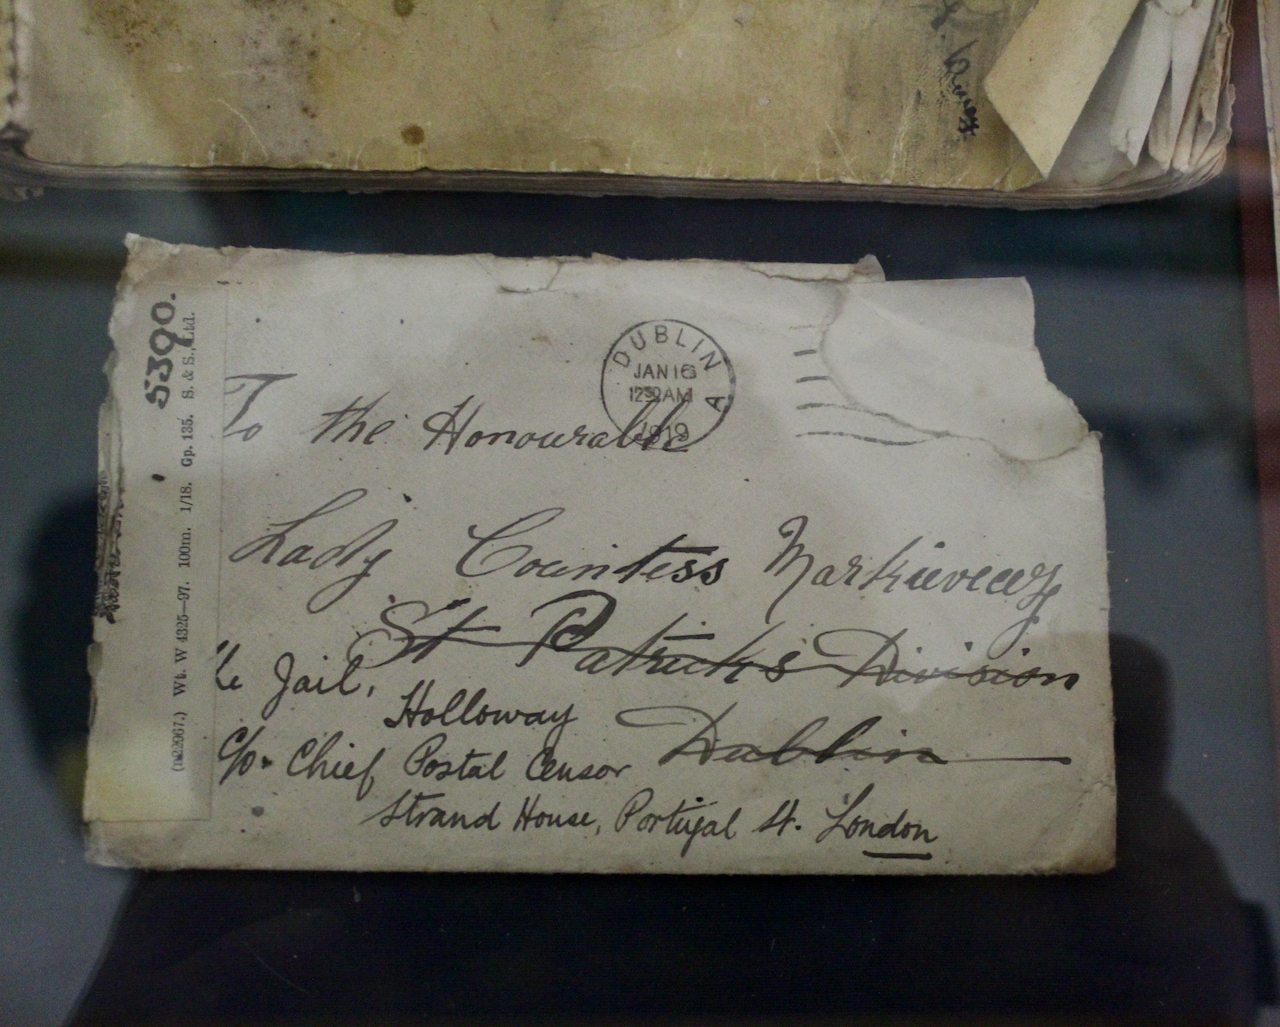 5390.
(12967.) Wt. W 4325—97. 100m. 1/18. Gp. 135. S. & S., Ltd.
DUBLIN
JAN 16
1230AM
A
1919
To the Honourable
Lady Countess Markievecz
St Patricks Division
Jail,
Holloway
Dublin
C/o. Chief Postal Censor
Strand House, Portugal St. London